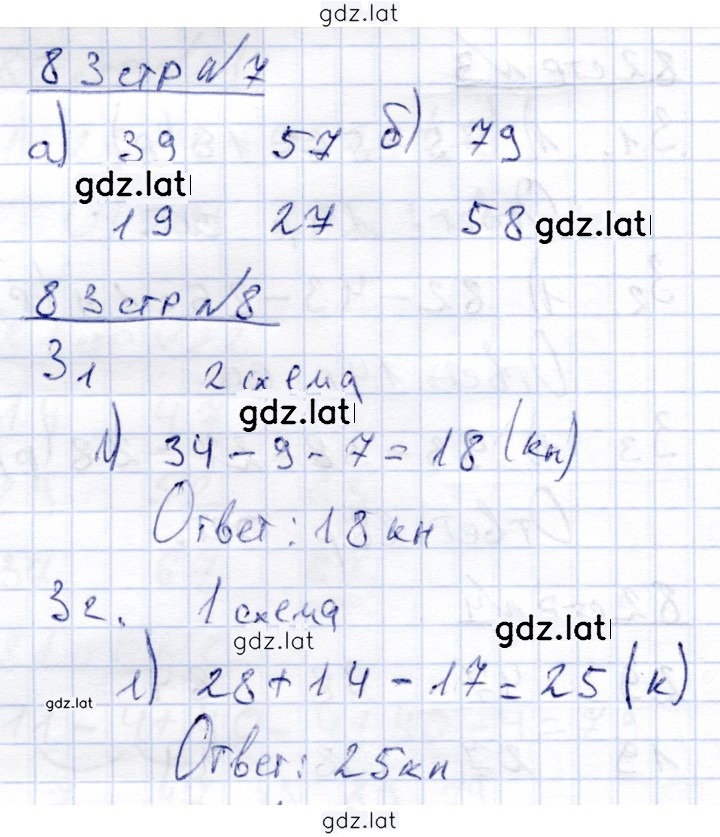 gdz.lat
83 стр №7
а) 39 57 б) 79
gdz.lat
19 27 58 gdz.lat
83 стр №8
З1 2 схема
gdz.lat
1) 34 - 9 - 7 = 18 (кн)
Ответ: 18 кн
З2. 1 схема
gdz.lat gdz.lat
1) 28 + 14 - 17 = 25 (к)
gdz.lat
Ответ: 25 кн
gdz.lat